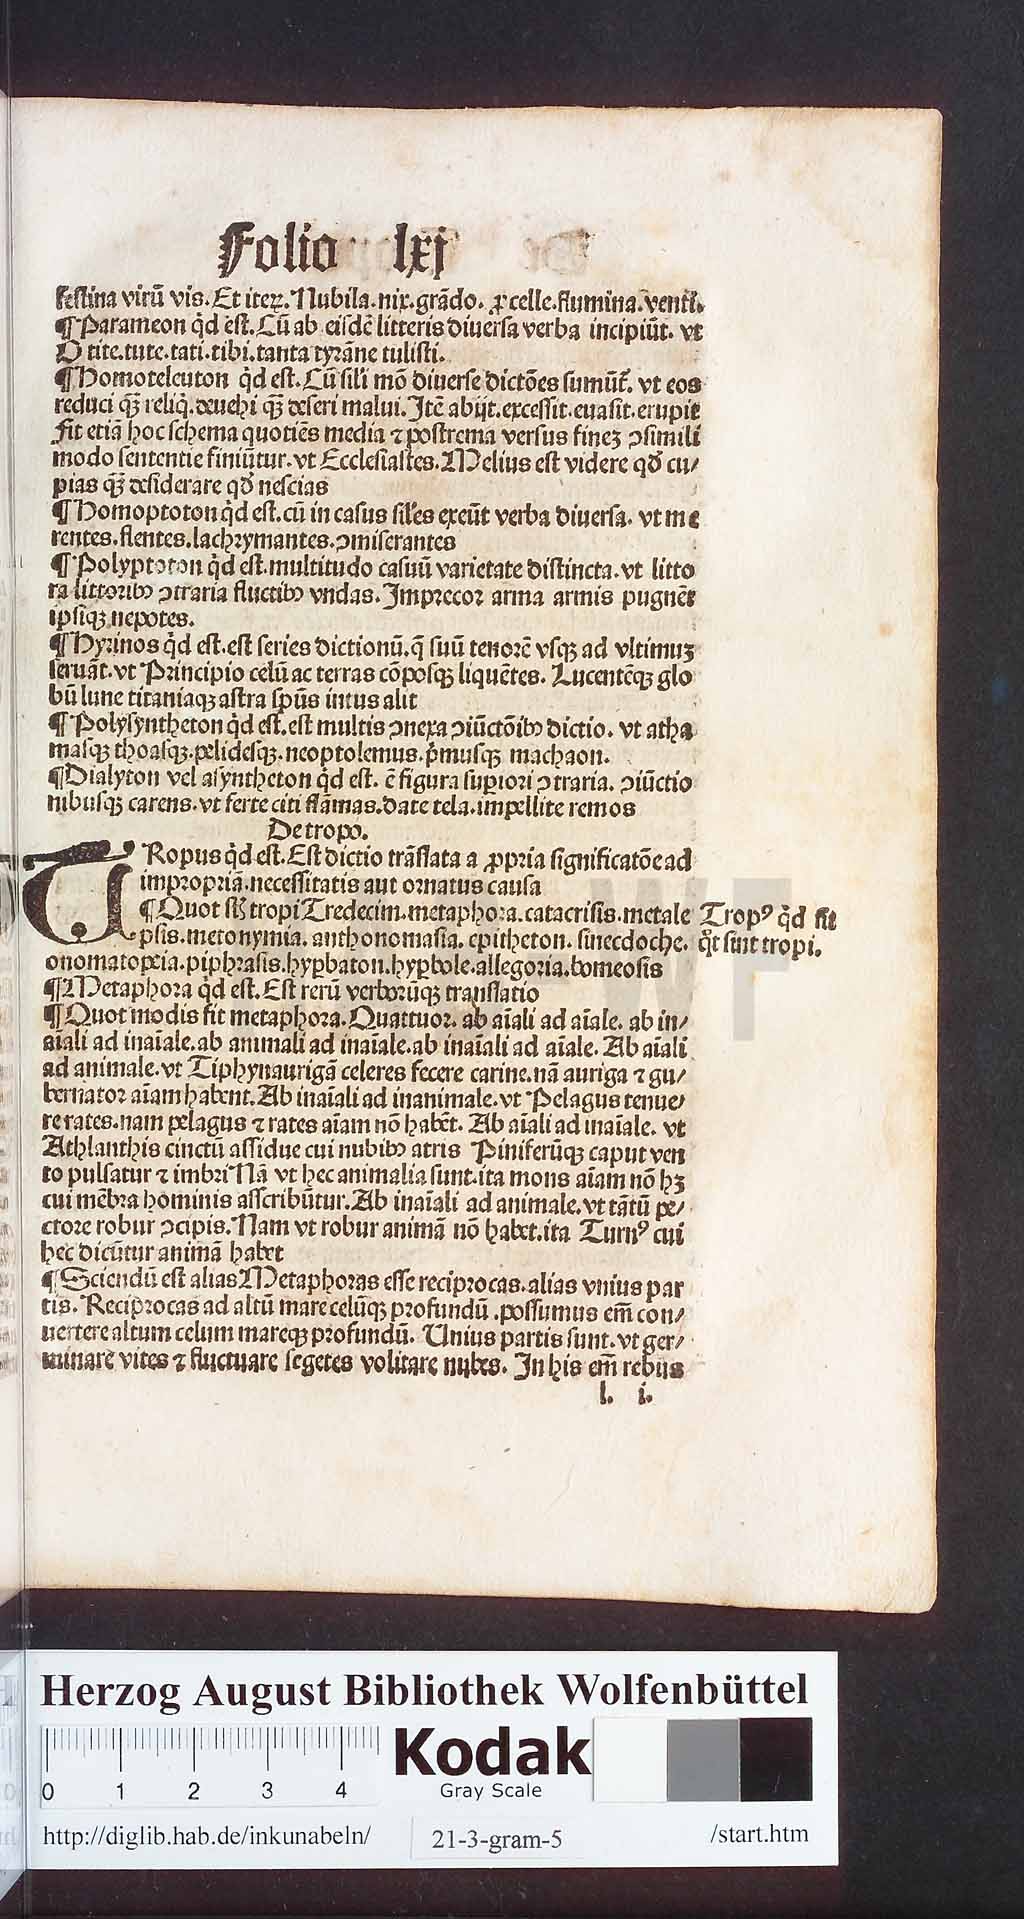 Folio lxj
festina virū vis. Et iteꝝ. Nubila. nix. grādo. ꝓcelle. flumina. venti.
¶ Parameon qͥd est. Cū ab eisdē litteris diuersa verba incipiūt. vt
O tite. tute. tati. tibi. tanta tyrāne tulisti.
¶ Homoteleuton qͥd est. Cū sili mō diuerse dictōes sumūt᷑. vt eos
reduci qꝫ̄ reliqͥ. deuehi qꝫ̄ deseri malui. Itē abijt. excessit. euasit. erupit
Fit etiā hoc schema quotiēs media ⁊ postrema versus fineꝫ ↄsimili
modo sententie finiūtur. vt Ecclesiastes. Melius est videre qđ cu⸗
pias qꝫ̄ desiderare qđ nescias
¶ Homoptoton qͥd est. cū in casus siles exeūt verba diuersa. vt me
rentes. flentes. lachrymantes. ↄmiserantes
¶ Polyptoton qͥd est. multitudo casuū varietate distincta. vt litto
ra littoribꝰ ↄtraria fluctibꝰ vndas. Imprecor arma armis pugnēt
ipsiqꝫ nepotes.
¶ Hyrinos qͥd est. est series dictionū. q̄ suū tenorē vsqꝫ ad vltimuꝫ
seruāt. vt Principio celū ac terras cōposqꝫ liquētes. Lucentēqꝫ glo
bū lune titaniaqꝫ astra spūs intus alit
¶ Polysyntheton qͥd est. est multis ↄnexa ↄiūctōibꝰ dictio. vt atha
masqꝫ thoasqꝫ. pelidesqꝫ. neoptolemus. pͥmusqꝫ machaon.
¶ Dialyton vel asyntheton qͥd est. ē figura supiori ↄtraria. ↄiūctio
nibusqꝫ carens. vt ferte citi flāmas. date tela. impellite remos
De tropo.
TRopus qͥd est. Est dictio trāslata a ꝓpria significatōe ad
impropriā. necessitatis aut ornatus causa
¶ Quot sūt tropi Tredecim. metaphora. catacrisis. metale
psis. metonymia. anthonomasia. epitheton. sinecdoche.
Tropꝰ qͥd sit
qͦt sunt tropi.
onomatopeia. piphrasis. hypbaton. hypbole. allegoria. homeosis
¶ Metaphora qͥd est. Est rerū verborūqꝫ translatio
¶ Quot modis fit metaphora. Quattuor. ab aīali ad aīale. ab in⸗
aiali ad inaīale. ab animali ad inaīale. ab inaīali ad aīale. Ab aīali
ad animale. vt Tiphynaurigā celeres fecere carine. nā auriga ⁊ gu⸗
bernator aīam habent. Ab inaiali ad inanimale. vt Pelagus tenue⸗
re rates. nam pelagus ⁊ rates aīam nō habēt. Ab aīali ad inaīale. vt
Athlanthis cinctū assidue cui nubibꝰ atris Piniferūqꝫ caput ven
to pulsatur ⁊ imbri Nā vt hec animalia sunt. ita mons aīam nō hꝫ
cui mēbra hominis ascribūtur. Ab inaīali ad animale. vt tātū pe⸗
ctore robur ↄcipis. Nam vt robur animā nō habet. ita Turnꝰ cui
hec dicūtur animā habet
¶ Sciendū est alias Metaphoras esse reciprocas. alias vnius par
tis. Reciprocas ad altū mare celūqꝫ profundū. possumus em̄ con⸗
uertere altum celum mareqꝫ profundū. Unius partis sunt. vt ger⸗
minare vites ⁊ fluctuare segetes volitare nubes. In his em̄ rebus
l. i.
Herzog August Bibliothek Wolfenbüttel
0 1 2 3 4
Kodak
Gray Scale
http://diglib.hab.de/inkunabeln/ 21-3-gram-5 /start.htm